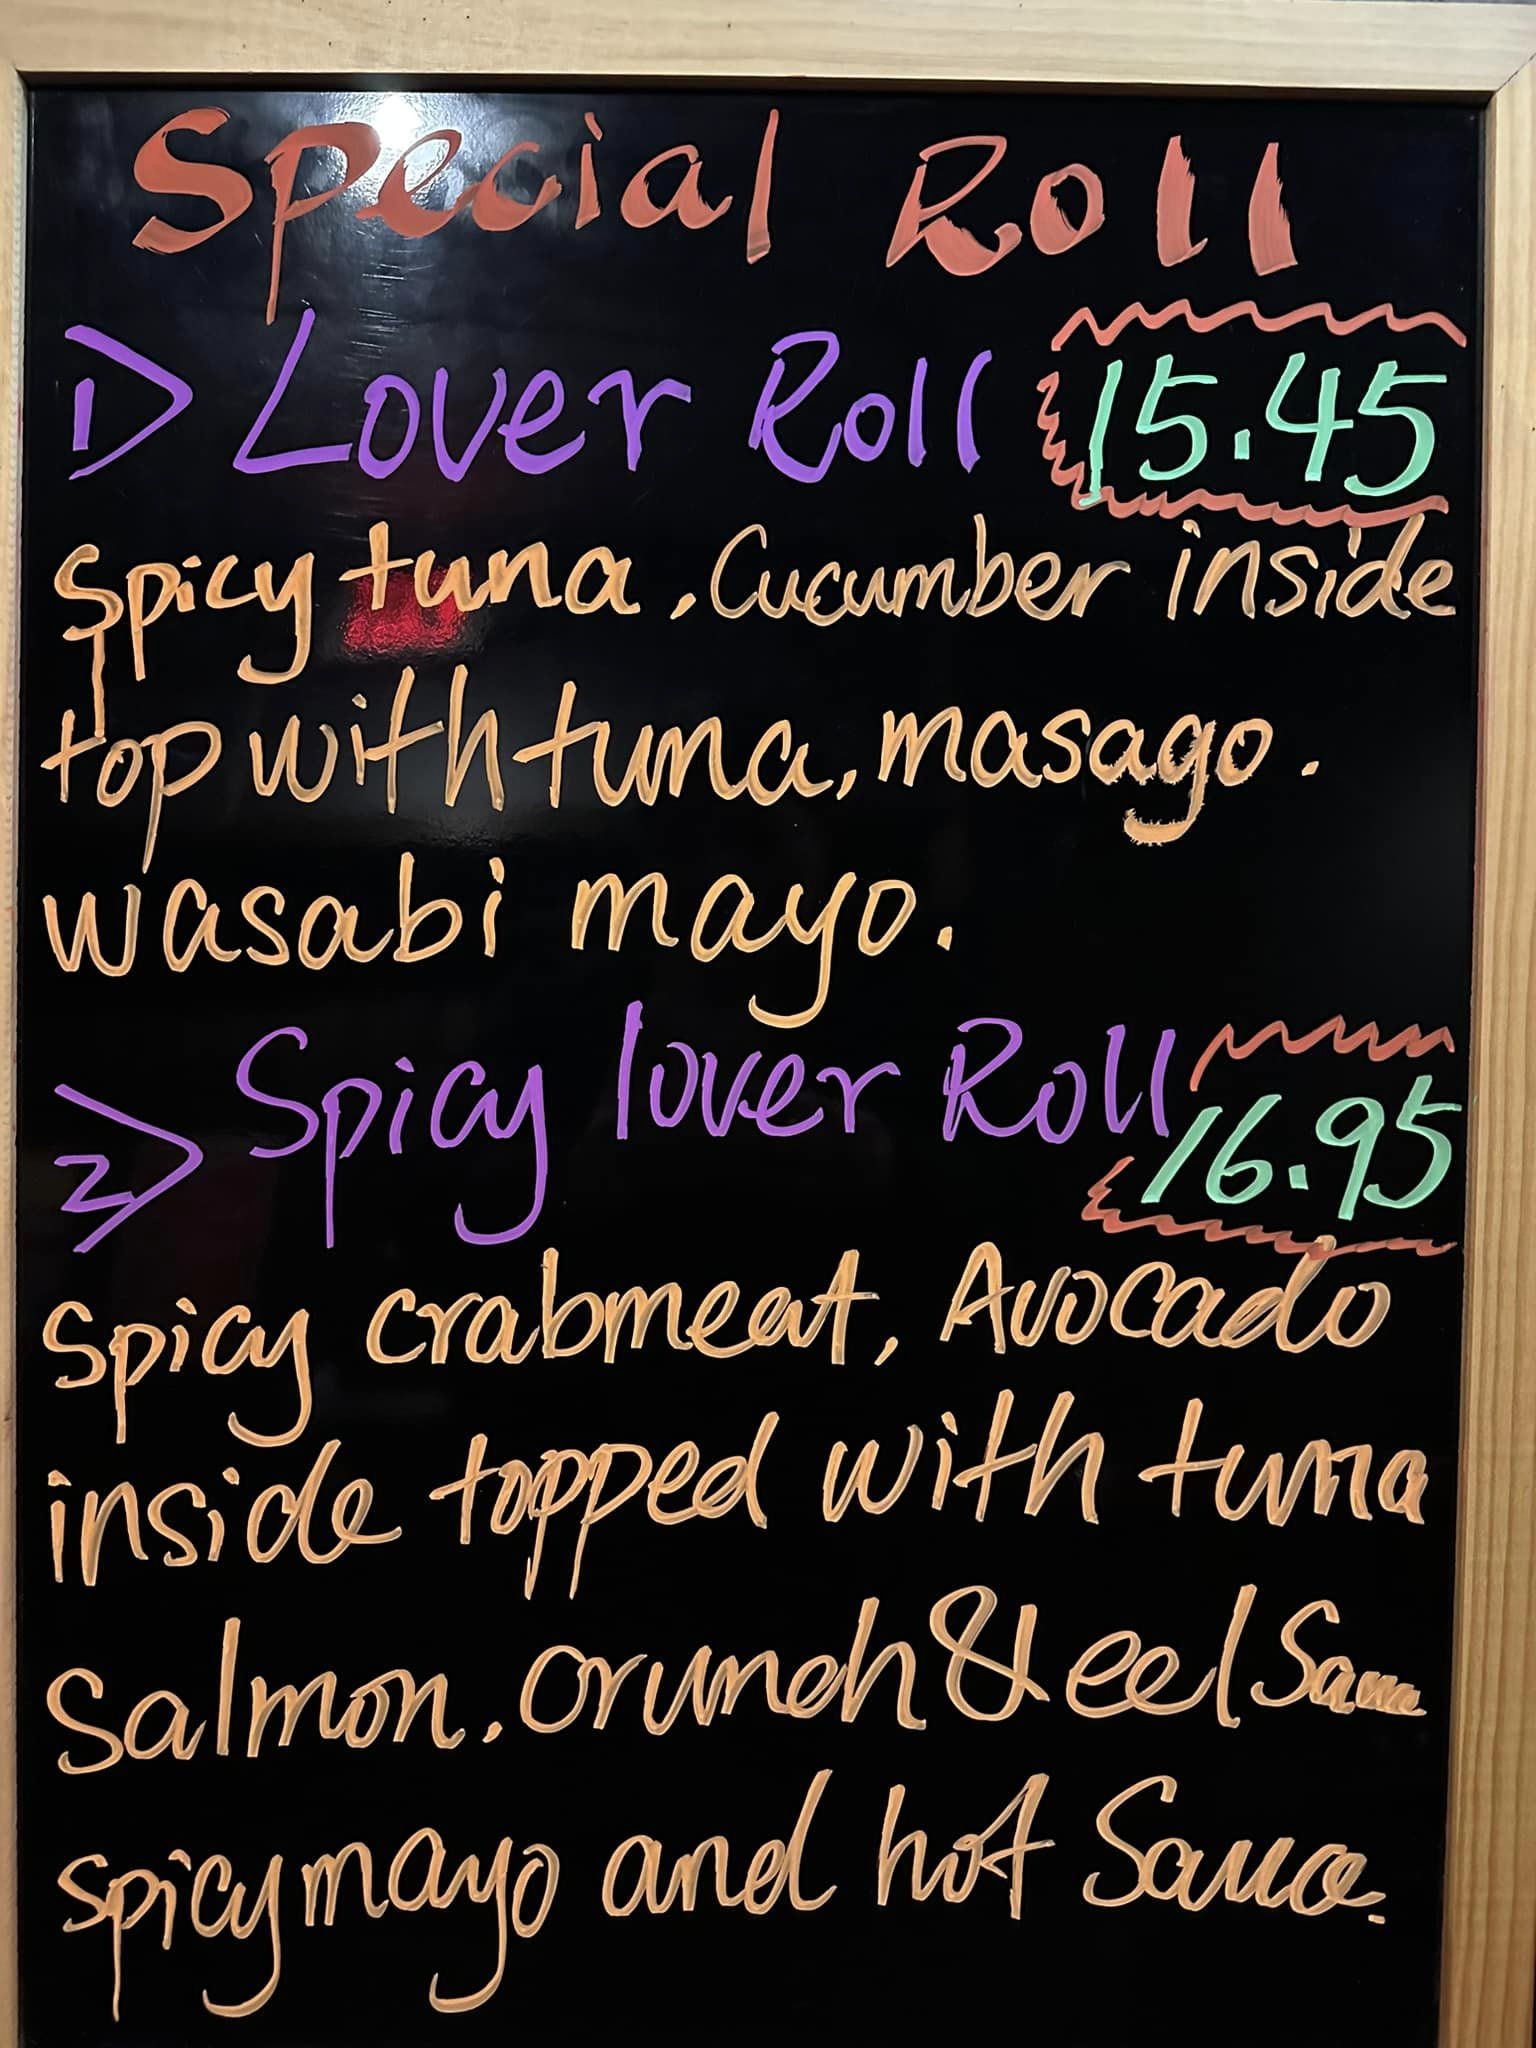 Special Roll
1> Lover Roll 15.45
Spicy tuna, Cucumber inside
top with tuna, masago.
wasabi mayo.
2> Spicy lover Roll 16.95
Spicy crabmeat, Avocado
inside topped with tuna
Salmon, crunch & eel Sauce
spicy mayo and hot Sauce.